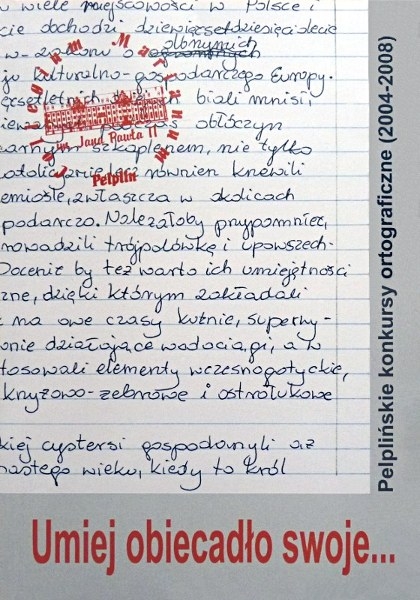 wiele miejscowości w Polsce i
cie dochodzi dziewięćsetdziesięciolecie
olbrzymich
ju kulturalno-gospodarczego Europy.
biali mnisi,
obłóczyn
szkaplerzem, nie tylko
również krzewili
rzemiosłe, zwłaszcza w okolicach
podarczo. Należałoby przypomnieć,
rowadzili trójpolówkę i upowszech-
Docenić by też warto ich umiejętności
zne, dzięki którym zakładali
ż na owe czasy kuźnie, superwy-
wnie działające wodociągi, a w
tosowali elementy wczesnogotyckie,
krzyżowo-żebrowe i ostrołukowe
kiej cystersi gospodarzyli aż
nastego wieku, kiedy to król
im. Jana Pawła II
Pelplin
Pelplińskie konkursy ortograficzne (2004-2008)
Umiej obiecadło swoje...